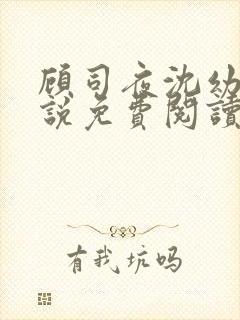 顾司夜沈幼
說免費閱讀
有我坑吗